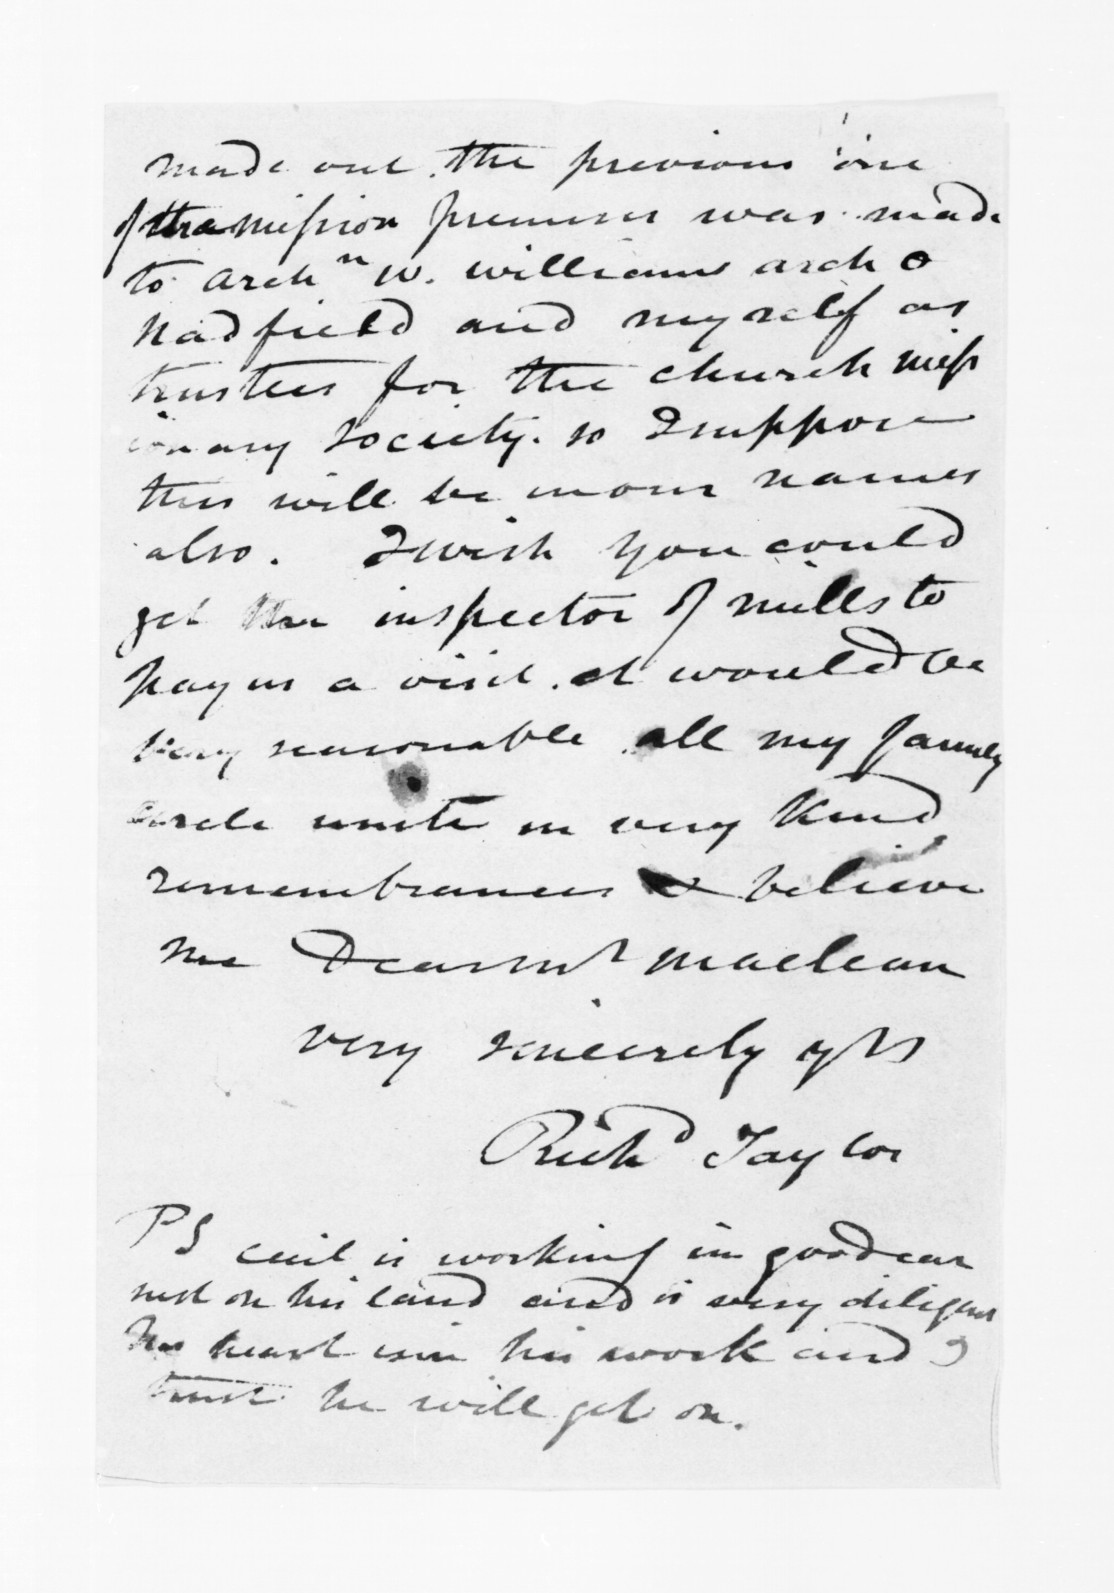 made out. the previous one
of the mission premises was made
to archn W. williams arch o
hadfield and myself as
trustees for the church miss
ionary society. so I suppose
this will be in our names
also. I wish you could
get the inspector of mills to
pay us a visit. it would be
very reasonable all my family
circle unite in very kind
remembrances & believe
me Dear Mr maclean
very sincerely yrs
Richd Taylor
PS cecil is working in good ear
nest on his land and is very diligent
his heart is in his work and I
trust he will get on.